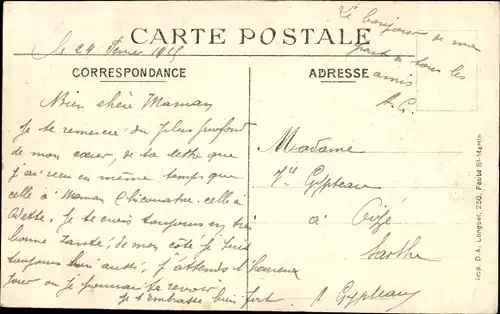 Le bonjour de ma
part à tous les
amis
A.G.
le 24 Fevrier 1915
CARTE POSTALE
CORRESPONDANCE
ADRESSE
Bien chère Maman
je te remercie du plus profond
de mon cœur, de ta lettre que
j'ai reçu en même temps que
celle à Maman celle à
je te crois toujours en très
bonne santé; de mon côté je suis
toujours bien aussi, j'attends l'heureux
jour ou je pourrai te revoir
je t'embrasse bien fort
A Gypteau
Madame
Vve Gypteau
à Oizé
Sarthe
Imp. D.A. Longuet, 250, Faubg St-Martin